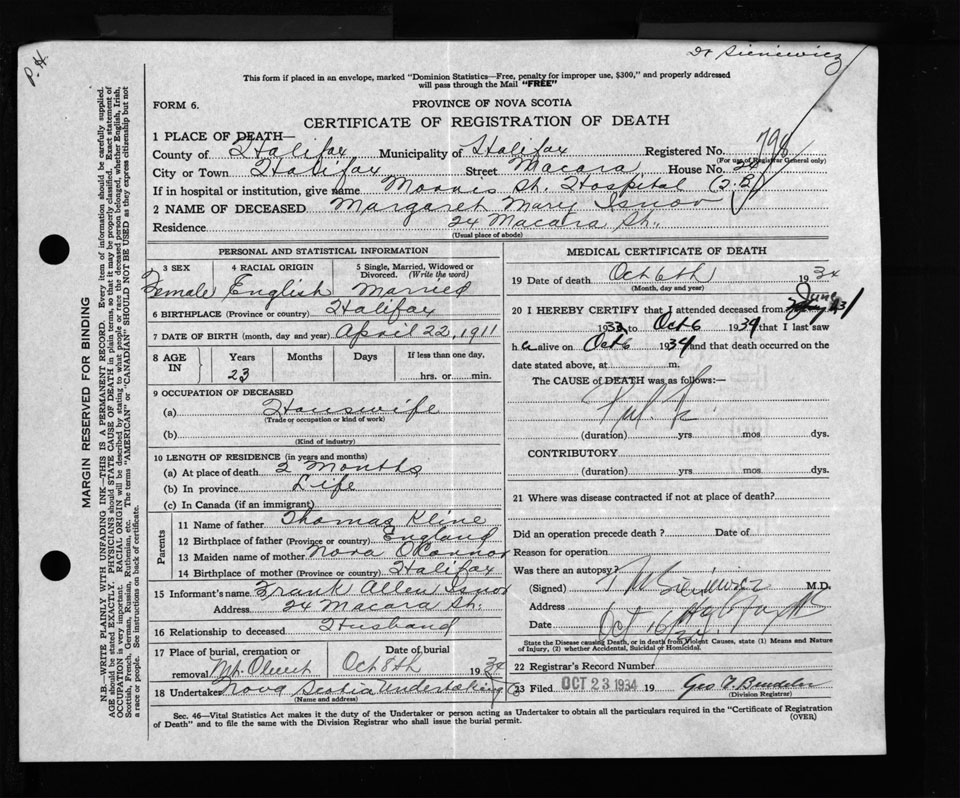 P. H.
Dr Sieniewicz
This form if placed in an envelope, marked "Dominion Statistics—Free, penalty for improper use, $300," and properly addressed
will pass through the Mail "FREE"
FORM 6.
PROVINCE OF NOVA SCOTIA
CERTIFICATE OF REGISTRATION OF DEATH
1 PLACE OF DEATH—
County of Halifax Municipality of Halifax Registered No. 798
(For use of Registrar General only)
City or Town Halifax Street Macara House No. 24
If in hospital or institution, give name Morris St. Hospital (T.B.)
2 NAME OF DECEASED Margaret Mary Isnor
Residence 24 Macara St.
(Usual place of abode)
PERSONAL AND STATISTICAL INFORMATION
3 SEX 4 RACIAL ORIGIN 5 Single, Married, Widowed or Divorced. (Write the word)
Female English Married
6 BIRTHPLACE (Province or country) Halifax
7 DATE OF BIRTH (month, day and year) April 22, 1911
8 AGE IN Years Months Days If less than one day,
23 hrs. or min.
9 OCCUPATION OF DECEASED
(a) Housewife
(Trade or occupation or kind of work)
(b)
(Kind of industry)
10 LENGTH OF RESIDENCE (in years and months)
(a) At place of death 2 Months
(b) In province Life
(c) In Canada (if an immigrant)
Parents
11 Name of father Thomas Kline
12 Birthplace of father (Province or country) England
13 Maiden name of mother Nora O'Connor
14 Birthplace of mother (Province or country) Halifax
15 Informant's name Frank Allen Isnor
Address 24 Macara St.
16 Relationship to deceased Husband
17 Place of burial, cremation or removal Mt. Olivet Date of burial Oct 8th 1934
18 Undertaker Nova Scotia Undertaking Co
(Name and address)
MEDICAL CERTIFICATE OF DEATH
19 Date of death Oct 6th 1934
(Month, day and year)
20 I HEREBY CERTIFY that I attended deceased from June
193 to Oct 6 1934 that I last saw
h alive on Oct 6 1934 and that death occurred on the
date stated above, at m.
The CAUSE of DEATH was as follows:—
(duration) yrs mos dys.
CONTRIBUTORY
(duration) yrs. mos. dys.
21 Where was disease contracted if not at place of death?
Did an operation precede death? Date of
Reason for operation
Was there an autopsy?
(Signed) Sieniewicz M.D.
Address Halifax
Date Oct
State the Disease causing Death, or in death from Violent Causes, state (1) Means and Nature
of Injury, (2) whether Accidental, Suicidal or Homicidal.
22 Registrar's Record Number
23 Filed OCT 23 1934 19 Geo
(Division Registrar)
Sec. 46—Vital Statistics Act makes it the duty of the Undertaker or person acting as Undertaker to obtain all the particulars required in the "Certificate of Registration
of Death" and to file the same with the Division Registrar who shall issue the burial permit. (OVER)
MARGIN RESERVED FOR BINDING
N.B.—WRITE PLAINLY WITH UNFADING INK—THIS IS A PERMANENT RECORD. Every item of information should be carefully supplied.
AGE should be stated EXACTLY. PHYSICIANS should STATE CAUSE OF DEATH in plain terms, so that it may be properly classified. Exact statement of
OCCUPATION is very important. RACIAL ORIGIN will be described by stating to what people or race the deceased person belonged, whether English, Irish,
Scottish, French, German, Russian, Ruthenian, etc. The terms "AMERICAN" or "CANADIAN" SHOULD NOT BE USED as they express citizenship but not
a race or people. See instructions on back of certificate.